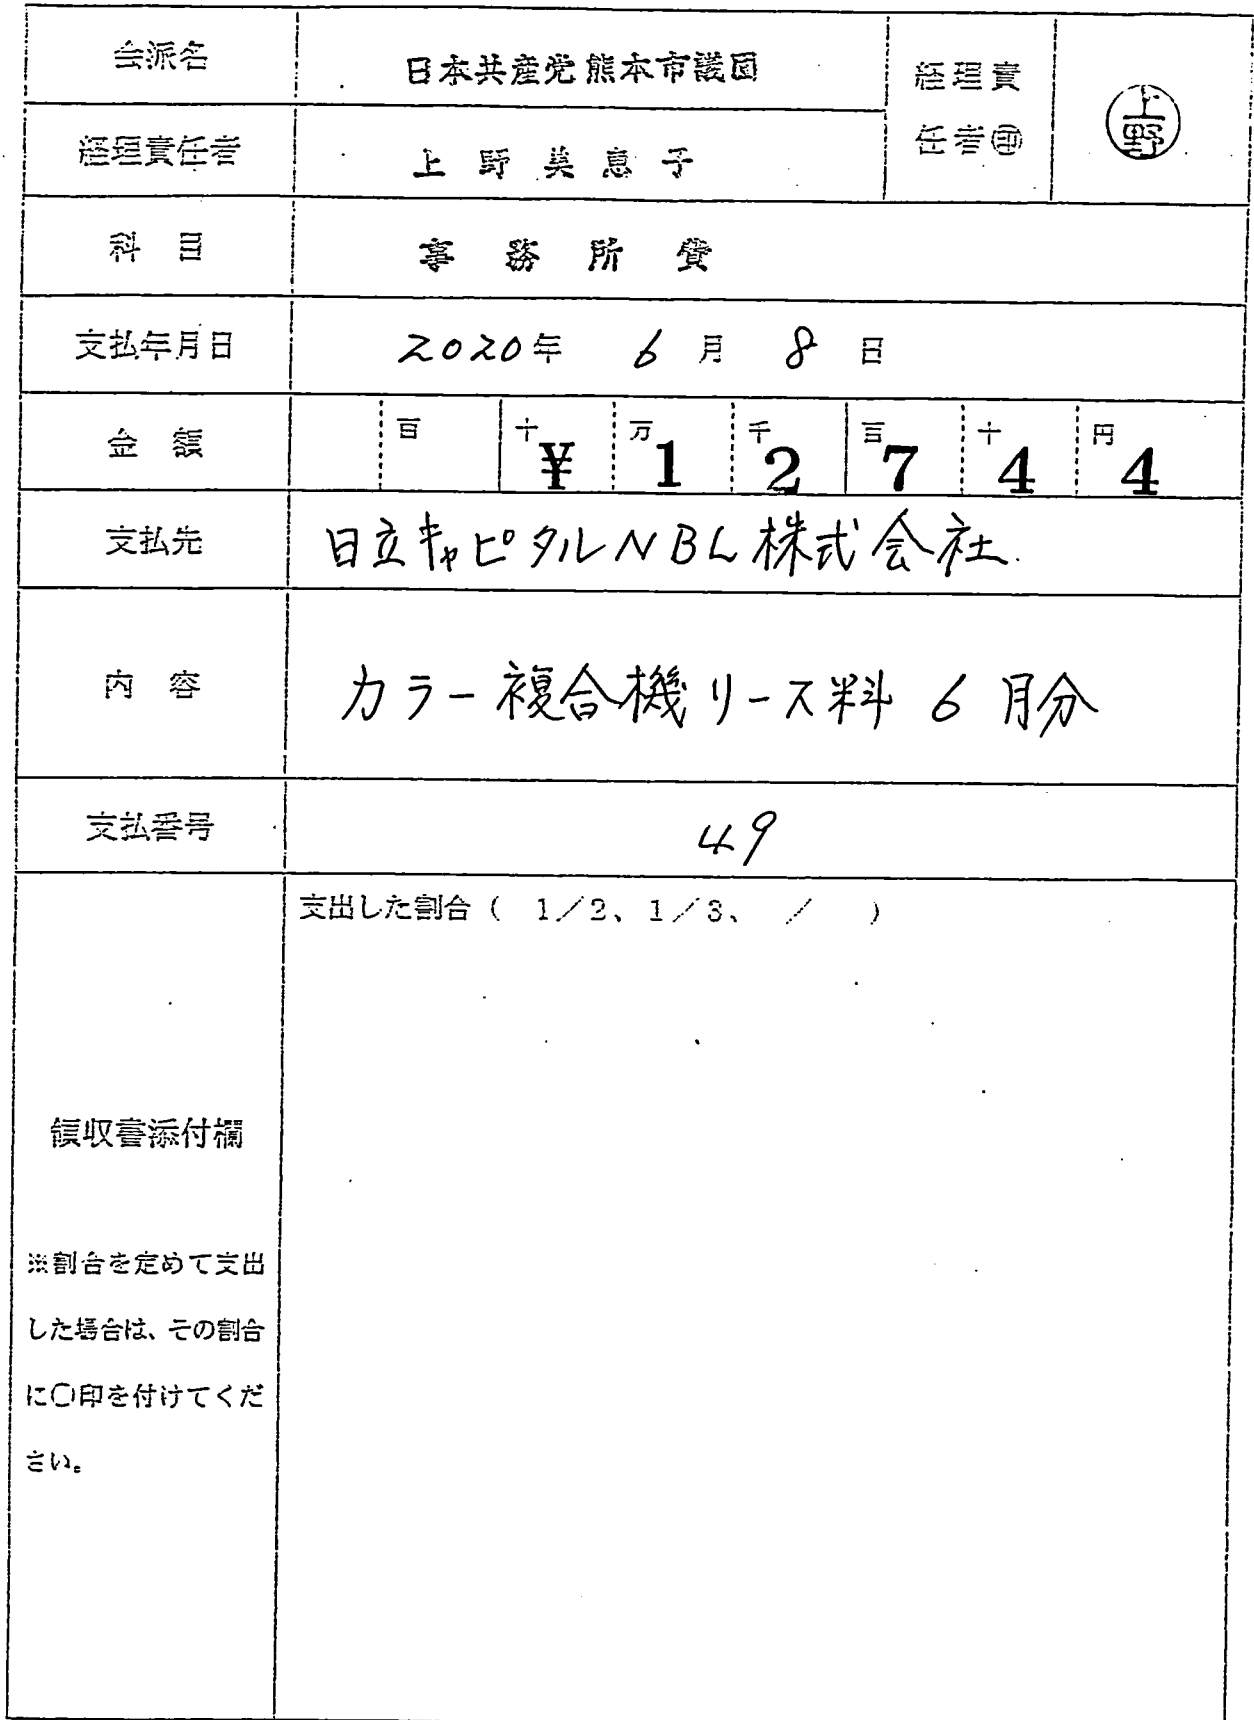 会派名 日本共産党熊本市議団 経理責任者㊞ 上野
経理責任者 上野美恵子
科目 事務所費
支払年月日 2020年 6月 8日
金額 百 十¥ 万1 千2 百7 十4 円4
支払先 日立キャピタルNBL株式会社
内容 カラー複合機リース料 6月分
支払番号 49
支出した割合( 1/2、1/3、 / )
領収書添付欄
※割合を定めて支出
した場合は、その割合
に〇印を付けてくだ
さい。